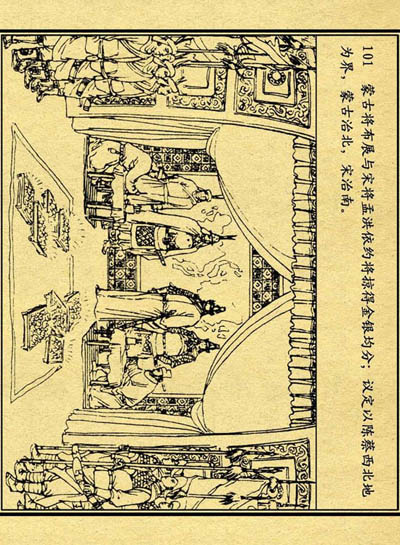 101 蒙古将布展与宋将孟洪依约将掠得金银均分；议定以陈蔡西北地
为界，蒙古治北，宋治南。